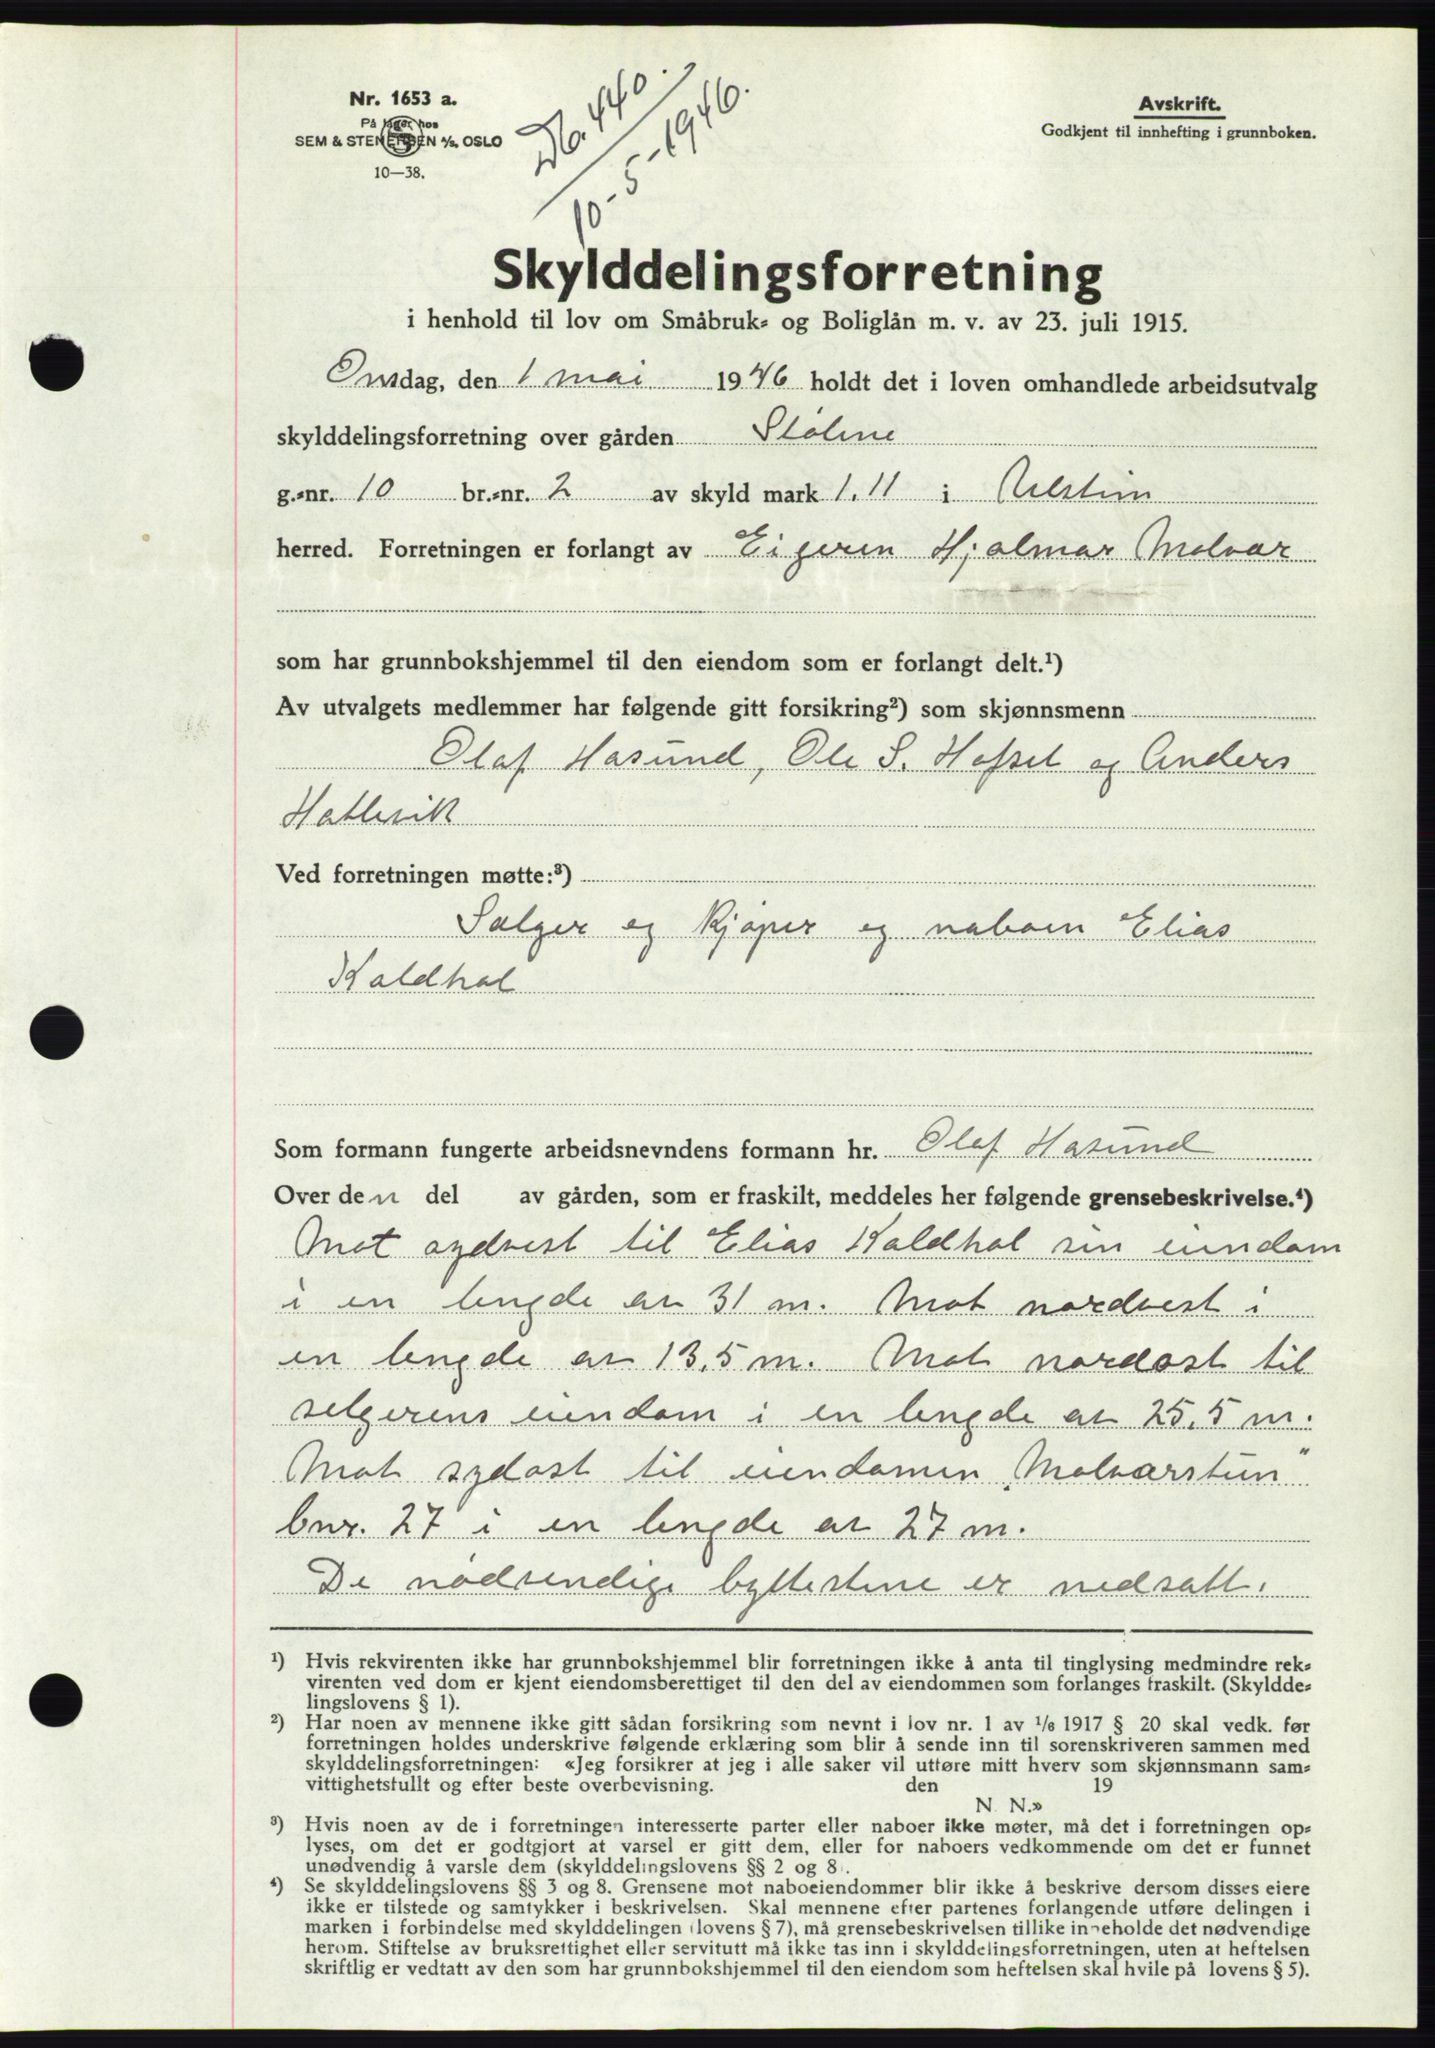 Nr. 1653 a.
På lager hos
SEM & STENERSEN A/S. OSLO
10—38.
Db. 440.
10-5-1946.
Avskrift.
Godkjent til innhefting i grunnboken.
Skylddelingsforretning
i henhold til lov om Småbruk= og Boliglån m. v. av 23. juli 1915.
Onsdag, den 1 mai 1946 holdt det i loven omhandlede arbeidsutvalg
skylddelingsforretning over gården Stølene
g.=nr. 10 br.=nr. 2 av skyld mark 1.11 i Ulstein
herred. Forretningen er forlangt av Eigeren Hjalmar Malvær
som har grunnbokshjemmel til den eiendom som er forlangt delt.¹)
Av utvalgets medlemmer har følgende gitt forsikring²) som skjønnsmenn
Olaf Hasund, Ole S. Hofset og Anders
Hatlevik
Ved forretningen møtte:³)
Selger og Kjøper og naboen Elias
Kaldhol
Som formann fungerte arbeidsnevndens formann hr. Olaf Hasund
Over den del av gården, som er fraskilt, meddeles her følgende grensebeskrivelse.⁴)
Mot sydvest til Elias Kaldhol sin eiendom
i en lengde av 31 m. Mot nordvest i
en lengde av 13,5 m. Mot nordøst til
selgerens eiendom i en lengde av 25,5 m.
Mot sydøst til eiendomen „Malværstun"
bnr. 27 i en lengde av 27 m.
De nødvendige byttestene er nedsatt.
¹) Hvis rekvirenten ikke har grunnbokshjemmel blir forretningen ikke å anta til tinglysing medmindre rek=
virenten ved dom er kjent eiendomsberettiget til den del av eiendommen som forlanges fraskilt. (Skyldde=
lingslovens § 1).
²) Har noen av mennene ikke gitt sådan forsikring som nevnt i lov nr. 1 av 1/6 1917 § 20 skal vedk. før
forretningen holdes underskrive følgende erklæring som blir å sende inn til sorenskriveren sammen med
skylddelingsforretningen: «Jeg forsikrer at jeg i alle saker vil utføre mitt hverv som skjønnsmann sam=
vittighetsfullt og efter beste overbevisning. den 19
N. N.»
³) Hvis noen av de i forretningen interesserte parter eller naboer ikke møter, må det i forretningen op=
lyses, om det er godtgjort at varsel er gitt dem, eller for naboers vedkommende om det er funnet
unødvendig å varsle dem (skylddelingslovens §§ 2 og 8).
⁴) Se skylddelingslovens §§ 3 og 8. Grensene mot naboeiendommer blir ikke å beskrive dersom disses eiere
ikke er tilstede og samtykker i beskrivelsen. Skal mennene efter partenes forlangende utføre delingen i
marken i forbindelse med skylddelingen (lovens § 7), må grensebeskrivelsen tillike inneholde det nødvendige
herom. Stiftelse av bruksrettighet eller servitutt må ikke tas inn i skylddelingsforretningen, uten at heftelsen
skriftlig er vedtatt av den som har grunnbokshjemmel til den eiendom som heftelsen skal hvile på lovens § 5).